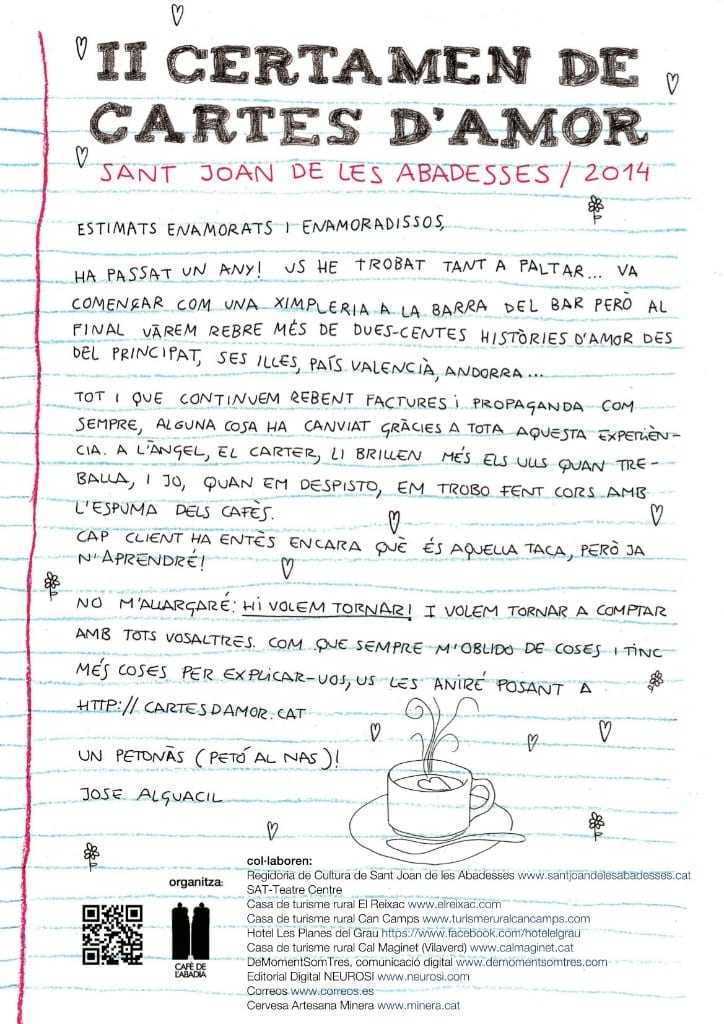 II CERTAMEN DE
CARTES D'AMOR
SANT JOAN DE LES ABADESSES / 2014
ESTIMATS ENAMORATS I ENAMORADISSOS,
HA PASSAT UN ANY! US HE TROBAT TANT A FALTAR... VA
COMENÇAR COM UNA XIMPLERIA A LA BARRA DEL BAR PERÒ AL
FINAL VÀREM REBRE MÉS DE DUES-CENTES HISTÒRIES D'AMOR DES
DEL PRINCIPAT, SES ILLES, PAÍS VALENCIÀ, ANDORRA...
TOT I QUE CONTINUEM REBENT FACTURES I PROPAGANDA COM
SEMPRE, ALGUNA COSA HA CANVIAT GRÀCIES A TOTA AQUESTA EXPERIÈN-
CIA. A L'ÀNGEL, EL CARTER, LI BRILLEN MÉS ELS ULLS QUAN TRE-
BALLA, I JO, QUAN EM DESPISTO, EM TROBO FENT CORS AMB
L'ESPUMA DELS CAFÈS.
CAP CLIENT HA ENTÈS ENCARA QUÈ ÉS AQUELLA TACA, PERÒ JA
N'APRENDRÉ!
NO M'ALLARGARÉ: HI VOLEM TORNAR! I VOLEM TORNAR A COMPTAR
AMB TOTS VOSALTRES. COM QUE SEMPRE M'OBLIDO DE COSES I TINC
MÉS COSES PER EXPLICAR-VOS, US LES ANIRÉ POSANT A
HTTP://CARTESDAMOR.CAT
UN PETONÀS (PETÓ AL NAS)!
JOSE ALGUACIL
organitza:
CAFÈ DE
L'ABADIA
col·laboren:
Regidoria de Cultura de Sant Joan de les Abadesses www.santjoandelesabadesses.cat
SAT-Teatre Centre
Casa de turisme rural El Reixac www.elreixac.com
Casa de turisme rural Can Camps www.turismeruralcancamps.com
Hotel Les Planes del Grau https://www.facebook.com/hotelelgrau
Casa de turisme rural Cal Maginet (Vilaverd) www.calmaginet.cat
DeMomentSomTres, comunicació digital www.demomentsomtres.com
Editorial Digital NEUROSI www.neurosi.com
Correos www.correos.es
Cervesa Artesana Minera www.minera.cat